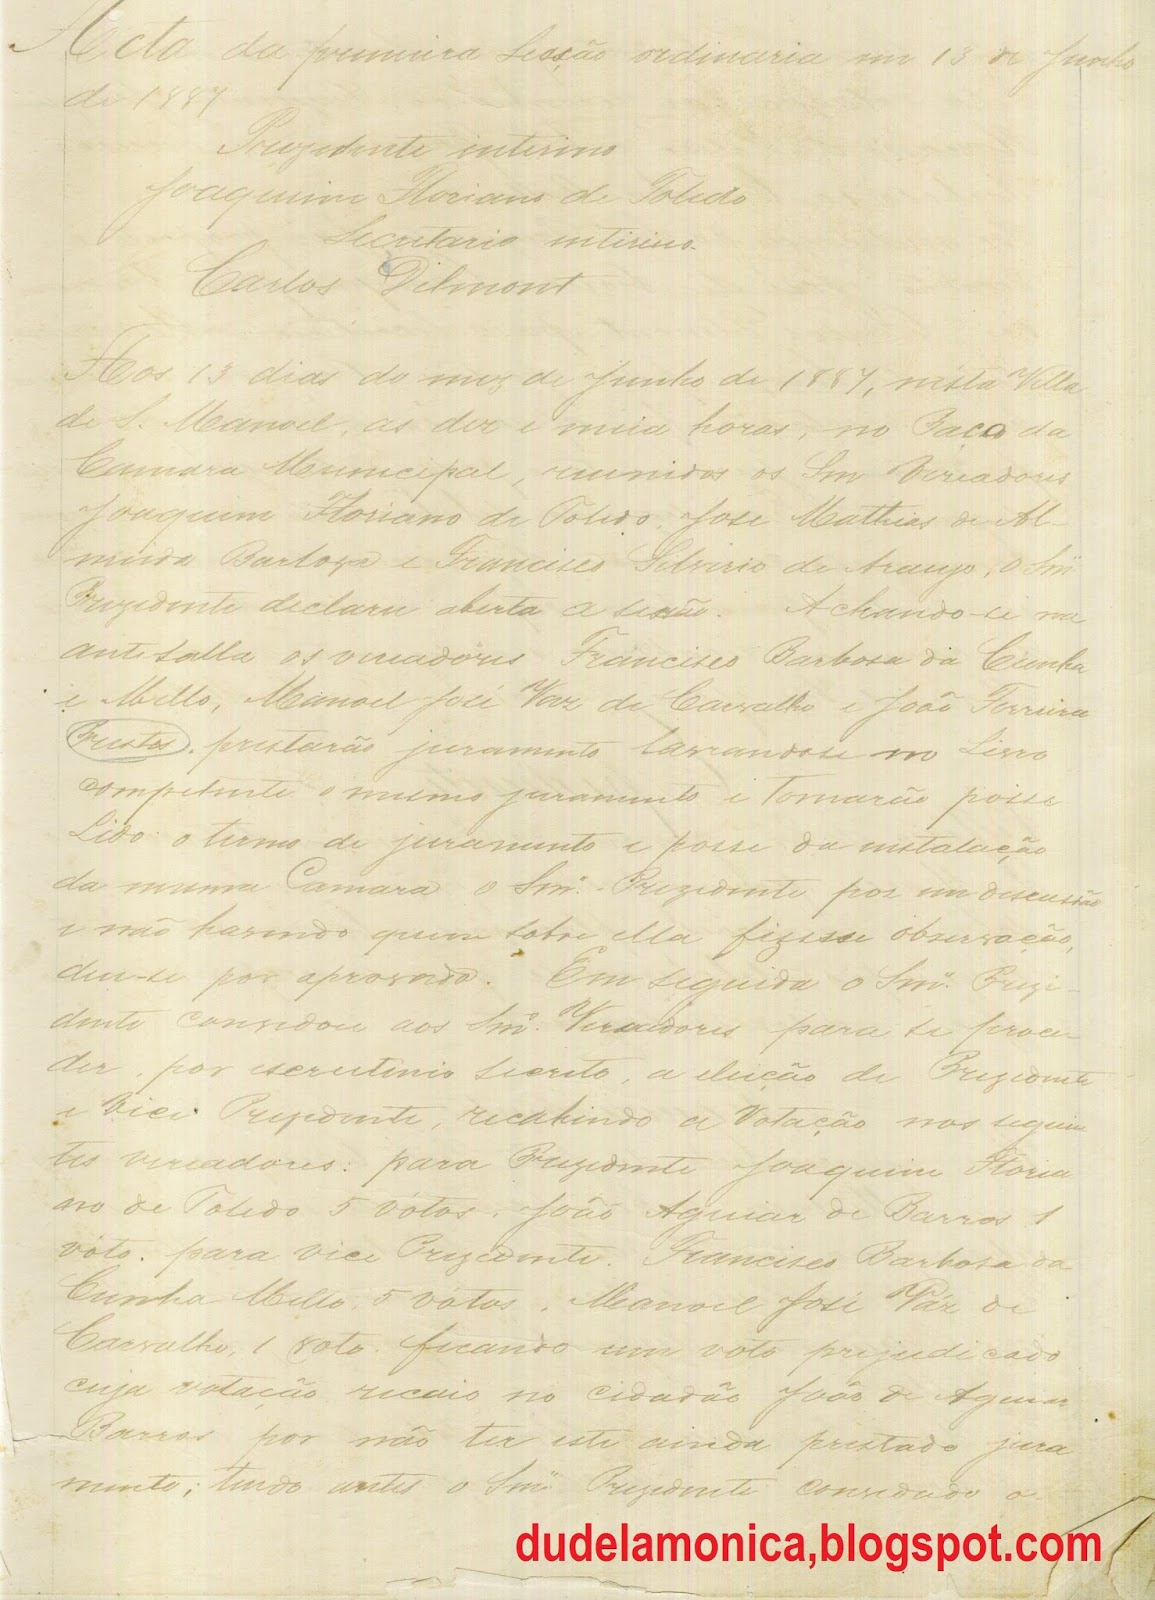 Acta da primeira sessão ordinaria em 13 de Junho
de 1887
Prezidente interino
Joaquim Floriano de Toledo
Secretario interino
Carlos Dilmont
Aos 13 dias do mez de Junho de 1887, nesta Villa
de S. Manoel, as dez e meia horas, no Paço da
Camara Municipal, reunidos os Snr Vereadores
Joaquim Floriano de Toledo, José Mathias de Al-
meida Barboza e Francisco Silverio de Araujo, o Snr
Prezidente declarou aberta a sessão. Achando-se na
ante salla os vereadores Francisco Barbosa da Cunha
e Mello, Manoel José Vaz de Carvalho e João Ferreira
Prestes, prestarão juramento lavrandose no Livro
competente o mesmo juramento e tomarão posse
Lido o termo de juramento e posse da instalação
da mesma Camara o Snr. Prezidente poz em discussão
e não havendo quem sobre ella fizesse observação,
deu-se por aprovada. Em seguida o Snr. Prezi-
dente convidou aos Snr. Vereadores para se proce-
der, por escrutinio secreto, a eleição de Prezidente
e Vice Prezidente, recahindo a votação nos seguin
tes vereadores: para Prezidente Joaquim Floria
no de Toledo 5 votos, João Aguiar de Barros 1
voto. para vice Prezidente. Francisco Barbosa da
Cunha Mello, 5 votos, Manoel José Váz de
Carvalho, 1 voto. ficando um voto prejudicado
cuja votação recaio no cidadão João de Aguiar
Barros por não ter este ainda prestado jura
mento; tendo antes o Snr Prezidente convidado o
dudelamonica,blogspot.com